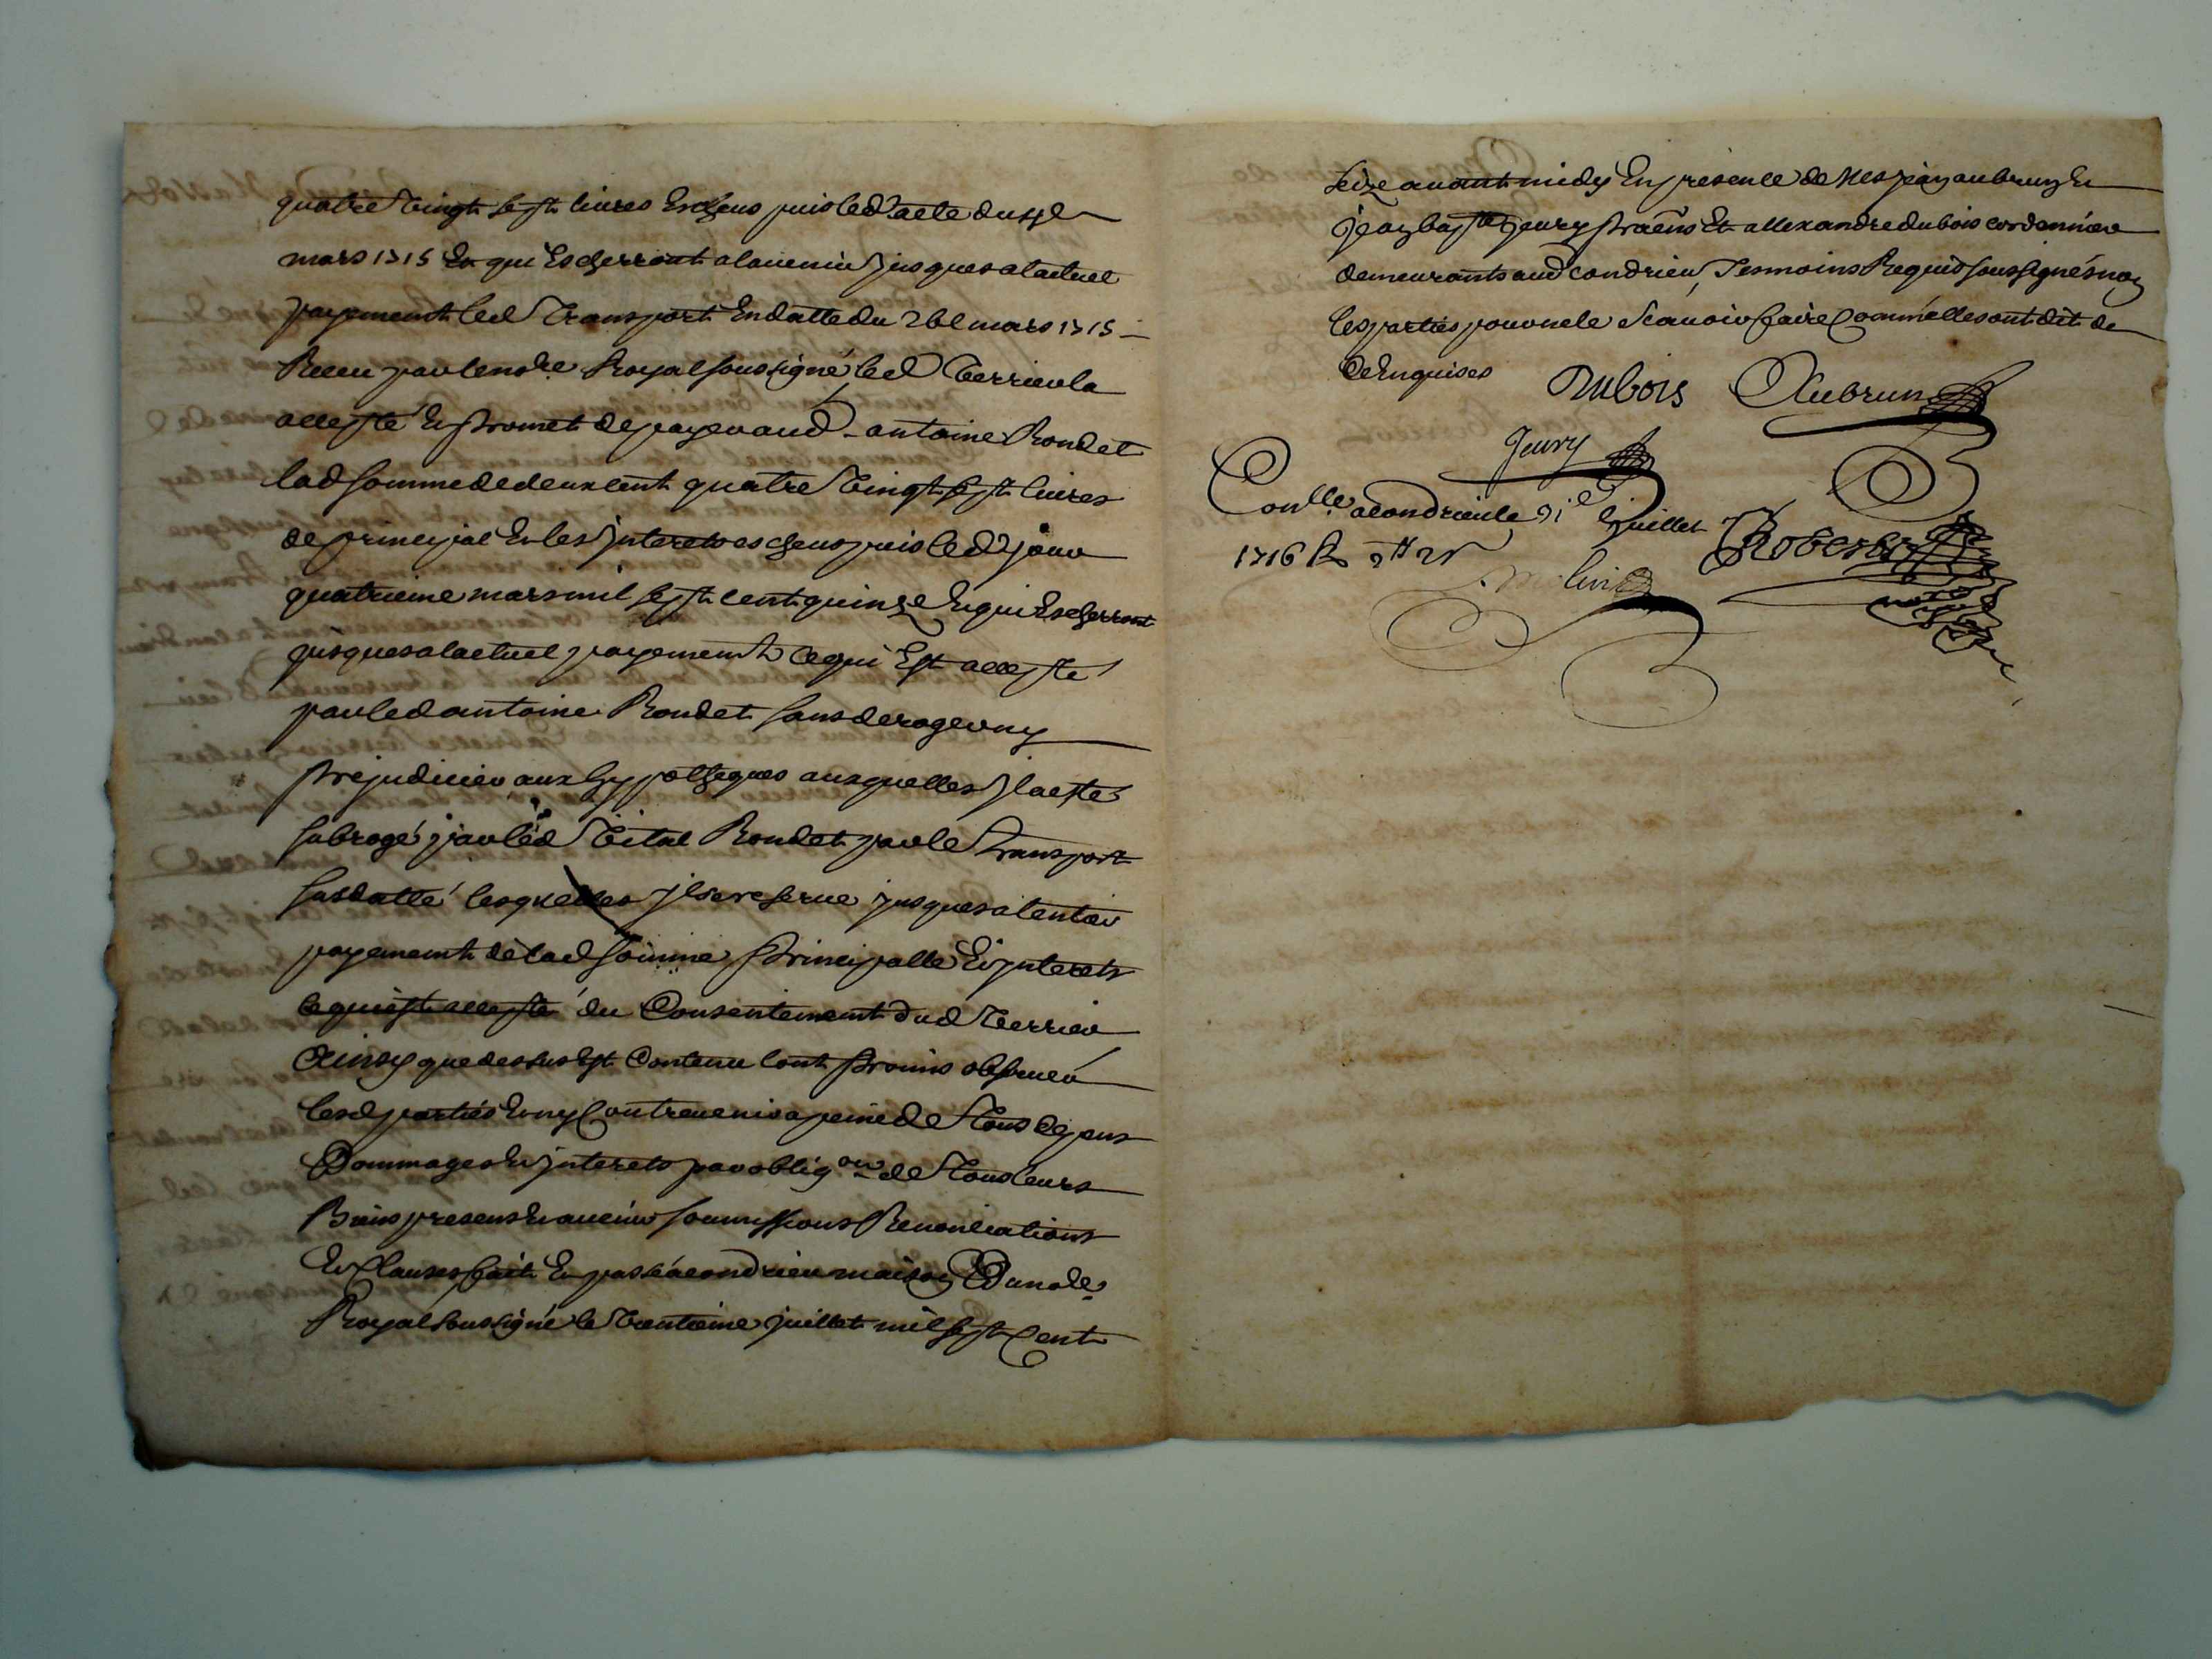 quatre vingt sept livres Escheus puis led acte du 4e
mars 1715 Et qui Escherront alavenir jusques alactuel
payement led Transport En datte du 26e mars 1715
Receu par le nore Royal soussigné, led Verrier la
accepté Et promet de payer aud antoine Rondet
lad somme de deux cent quatre vingt sept livres
de principal Et les jnterets escheus puis led jour
quatrieme mars mil sept cent quinze Et qui Escherront
jusques alactuel payement ce qui Est accepté
par led antoine Rondet sans deroger ny
prejudicier aux hyppotheques ausquelles jl a esté
subrogé par led Vital Rondet par le Transport
susdatté lesquelles jl se reserve jusques a lentier
payement de lad somme principalle Et jnterets
ce qui est accepté du Consentement dud Verrier
Ainsy que dessus Est Contenu l'ont promis observer
lesd parties Et ny Contrevenir a peine de Tous depens
Dommages Et jnterets par obligon de Tous leurs
Biens presens Et avenir soumissions Renonciations
Et Clauses fait Et passé a condrieu maison Du nore
Royal soussigné le Trentieme juillet mil sept Cent
seize avant midy En presence de Mes jean aubrun Et
jean bapte jeury praens Et allexandre dubois cordonnier
demeurants aud condrieu, Tesmoins Requis soussignés non
les parties pour ne le scavoir faire Comme elles ont dit de
ce Enquises
Dubois Aubrun
Jeury
Conlle a condrieu le 31e juillet
1716 R
Robert